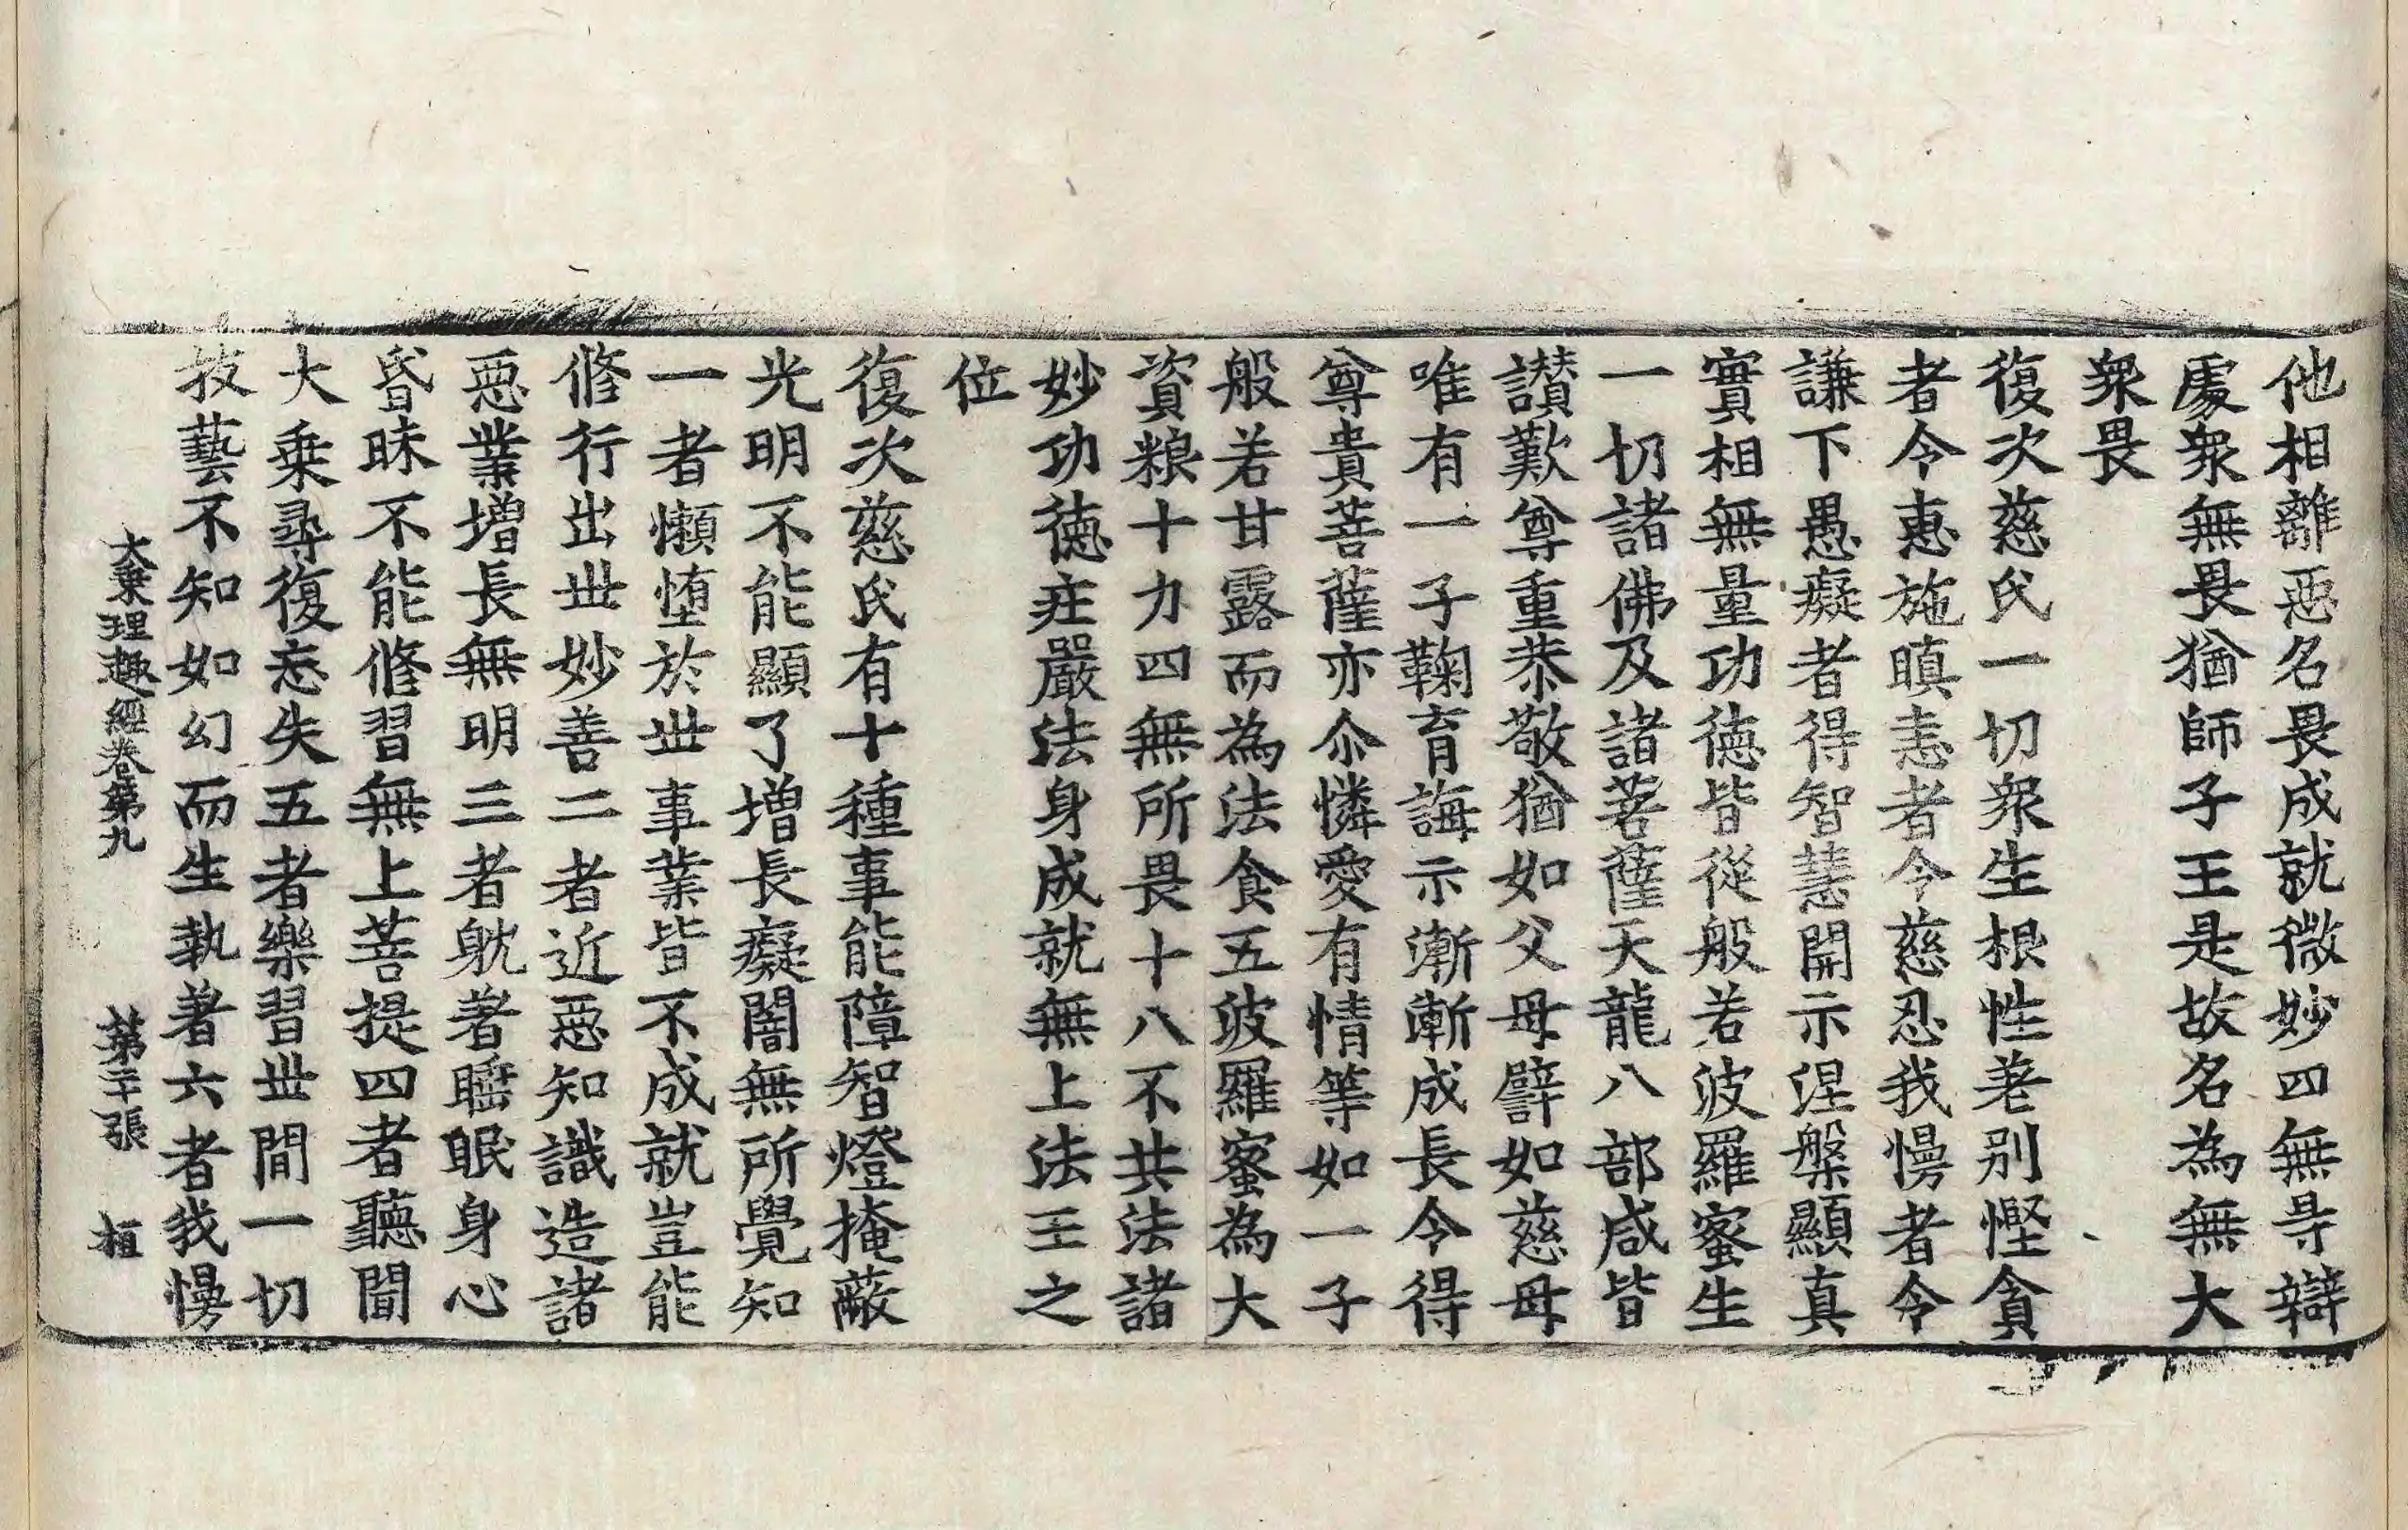 他相離惡名畏成就微妙四無㝵辯
處衆無畏猶師子王是故名為無大
衆畏
復次慈氏一切衆生根性差别慳貪
者令惠施瞋恚者令慈忍我慢者令
謙下愚癡者得智慧開示涅槃顯真
實相無量功德皆從般若波羅蜜生
一切諸佛及諸菩薩天龍八部咸皆
讃歎尊重恭敬猶如父母譬如慈母
唯有一子鞠育誨示漸漸成長令得
尊貴菩薩亦尒憐愛有情等如一子
般若甘露而為法食五波羅蜜為大
資粮十力四無所畏十八不共法諸
妙功德莊嚴法身成就無上法王之
位
復次慈氏有十種事能障智燈掩蔽
光明不能顯了增長癡闇無所覺知
一者懶墮於丗事業皆不成就豈能
修行出丗妙善二者近惡知識造諸
惡業增長無明三者躭著睡眠身心
昏昧不能修習無上菩提四者聽聞
大乗尋復忘失五者樂習丗間一切
技藝不知如幻而生執著六者我慢
大乗理趣經卷第九 第二十張 桓